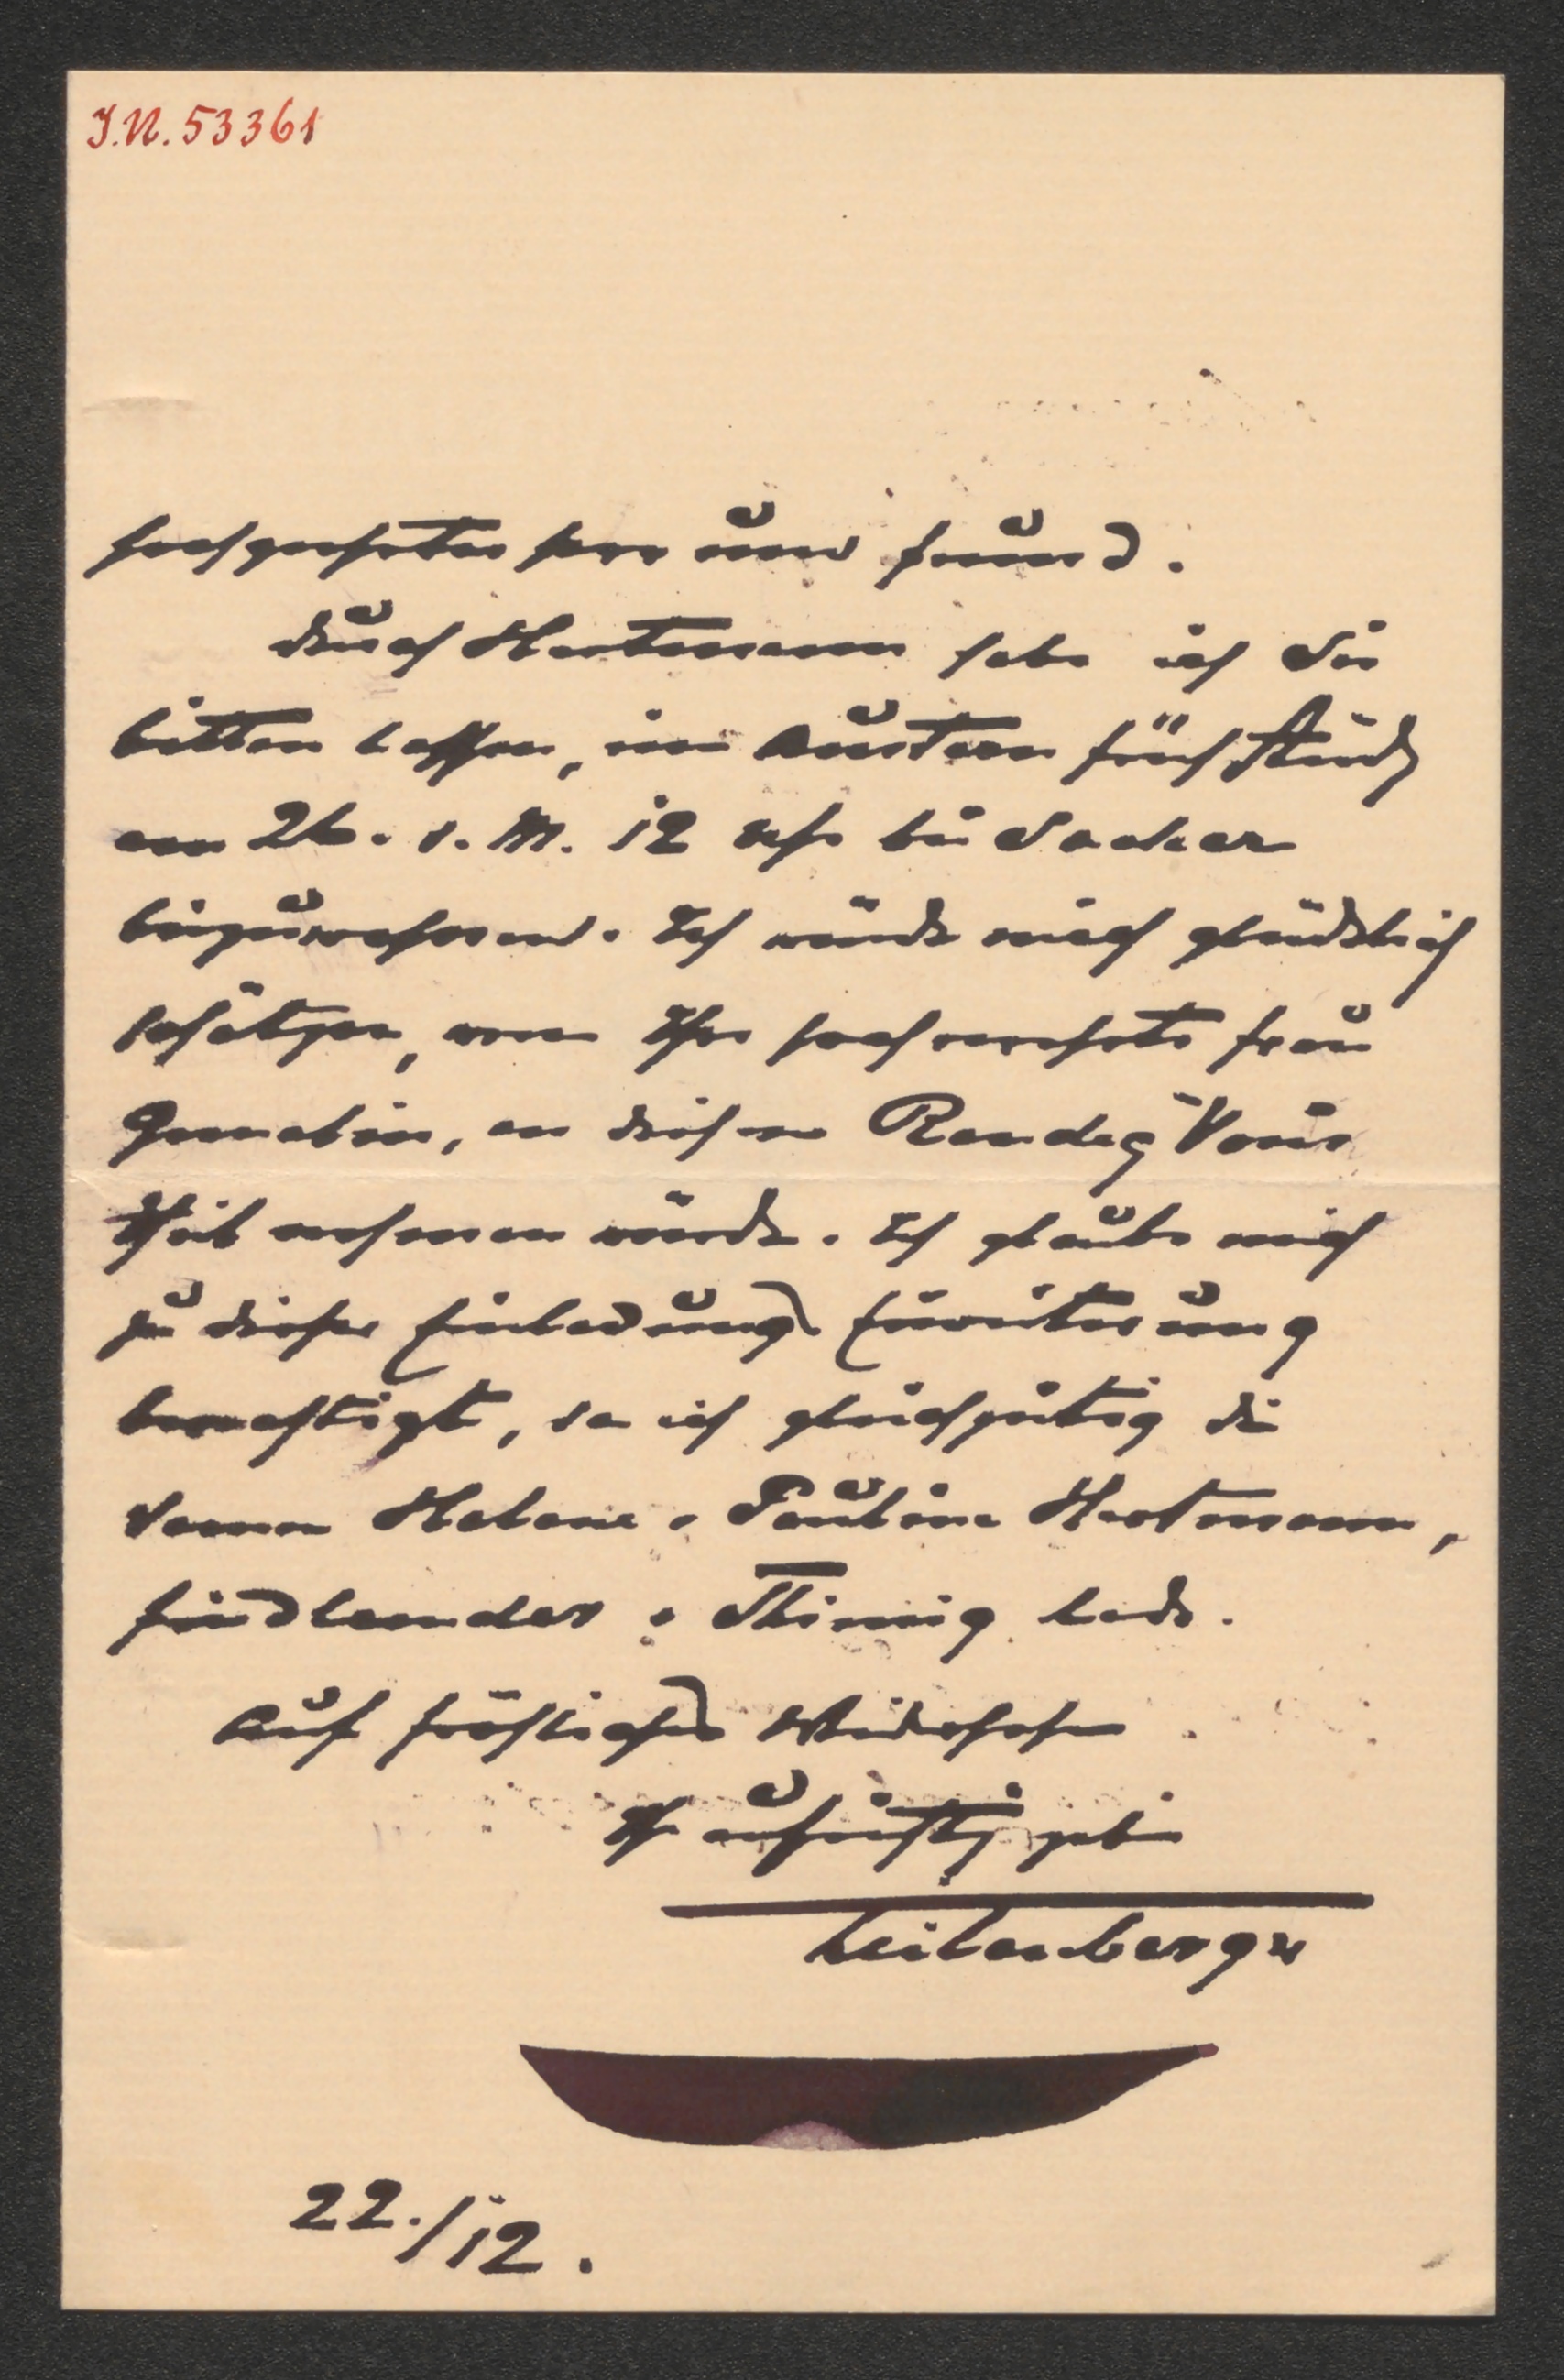 J.N. 53361
Hochgeehrter Herr und Freund.
Durch Hartmann habe ich Sie
bitten lassen, ein Austern Frühstück
am 26. d. M. 12 Uhr bei Sacher
beizuwohnen. Ich würde mich glücklich
schätzen, wenn Ihre hochverehrte Frau
Gemalin, an diesem Randez Vous
Theil nehmen würde. Ich glaube mich
zu dieser Einladungs Erweiterung
berechtigt, da ich gleichzeitig die
Damen Helene, Pauline Hartmann,
Friedlander, Thimig lade.
Auf fröhliches Wiedersehen
Ihr aufrichtig
Leitenberger
22./12.